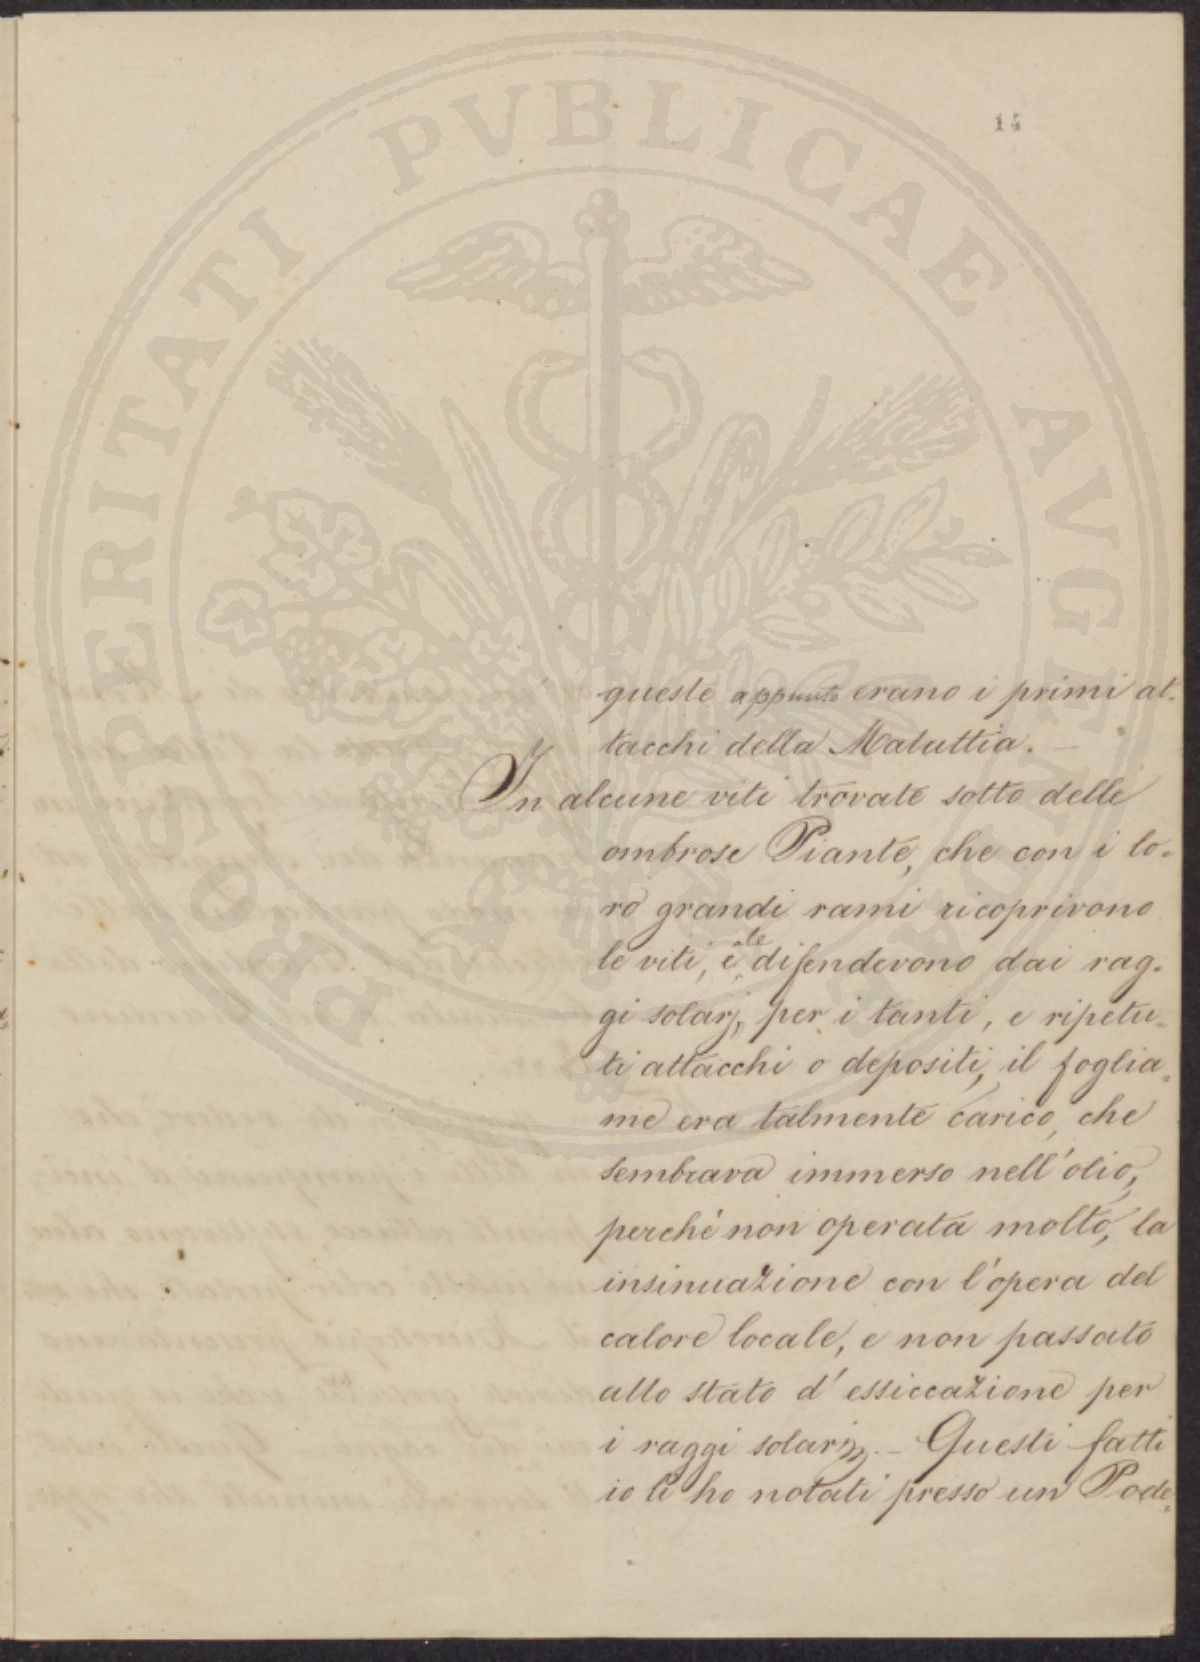 14
PROSPERITATI PUBLICAE AVGENDAE
queste appunto erano i primi at-
tacchi della Maluttia. —
In alcune viti trovate sotto delle
ombrose Piante, che con i lo-
ro grandi rami ricoprivono
le viti, e le difendevono dai rag-
gi solarj, per i tanti, e ripetu-
ti attacchi o depositi, il foglia-
me era talmente carico, che
sembrava immerso nell'olio,
perché non operata molto, la
insinuazione con l'opera del
calore locale, e non passato
allo stato d'essiccazione per
i raggi solarj. — Questi fatti
io li ho notati presso un Pode-